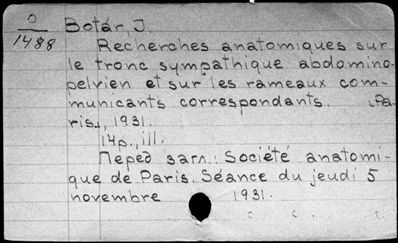 О
1488
Botár, J.
Recherches anatomiques sur
le tronc sympathique abdomino-
pelvien et sur les rameaux com-
municants correspondants. Pa-
ris, 1931.
14p., ill.
Перед загл.: Société anatomi-
que de Paris. Séance du jeudi 5
novembre 1931.